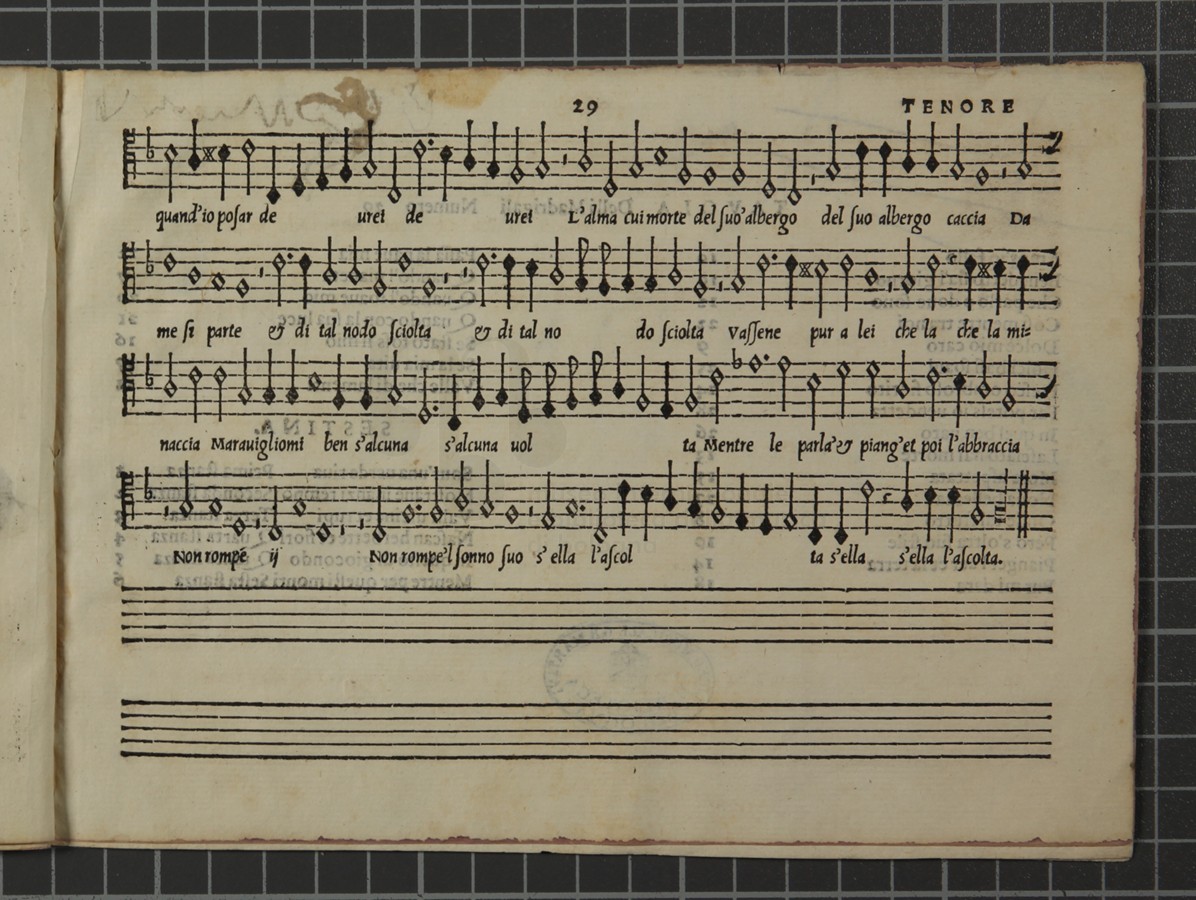 29 TENORE
quand'io posar de urei de urei L'alma cui morte del suo'albergo del suo albergo caccia Da
me si parte & di tal nodo sciolta & di tal no do sciolta Vassene pur a lei che la che la mi=
naccia Marauigliomi ben s'alcuna s'alcuna uol ta Mentre le parla'& piang'et poi l'abbraccia
Non rompe ij Non rompe'l sonno suo s'ella l'ascol ta s'ella s'ella l'ascolta.